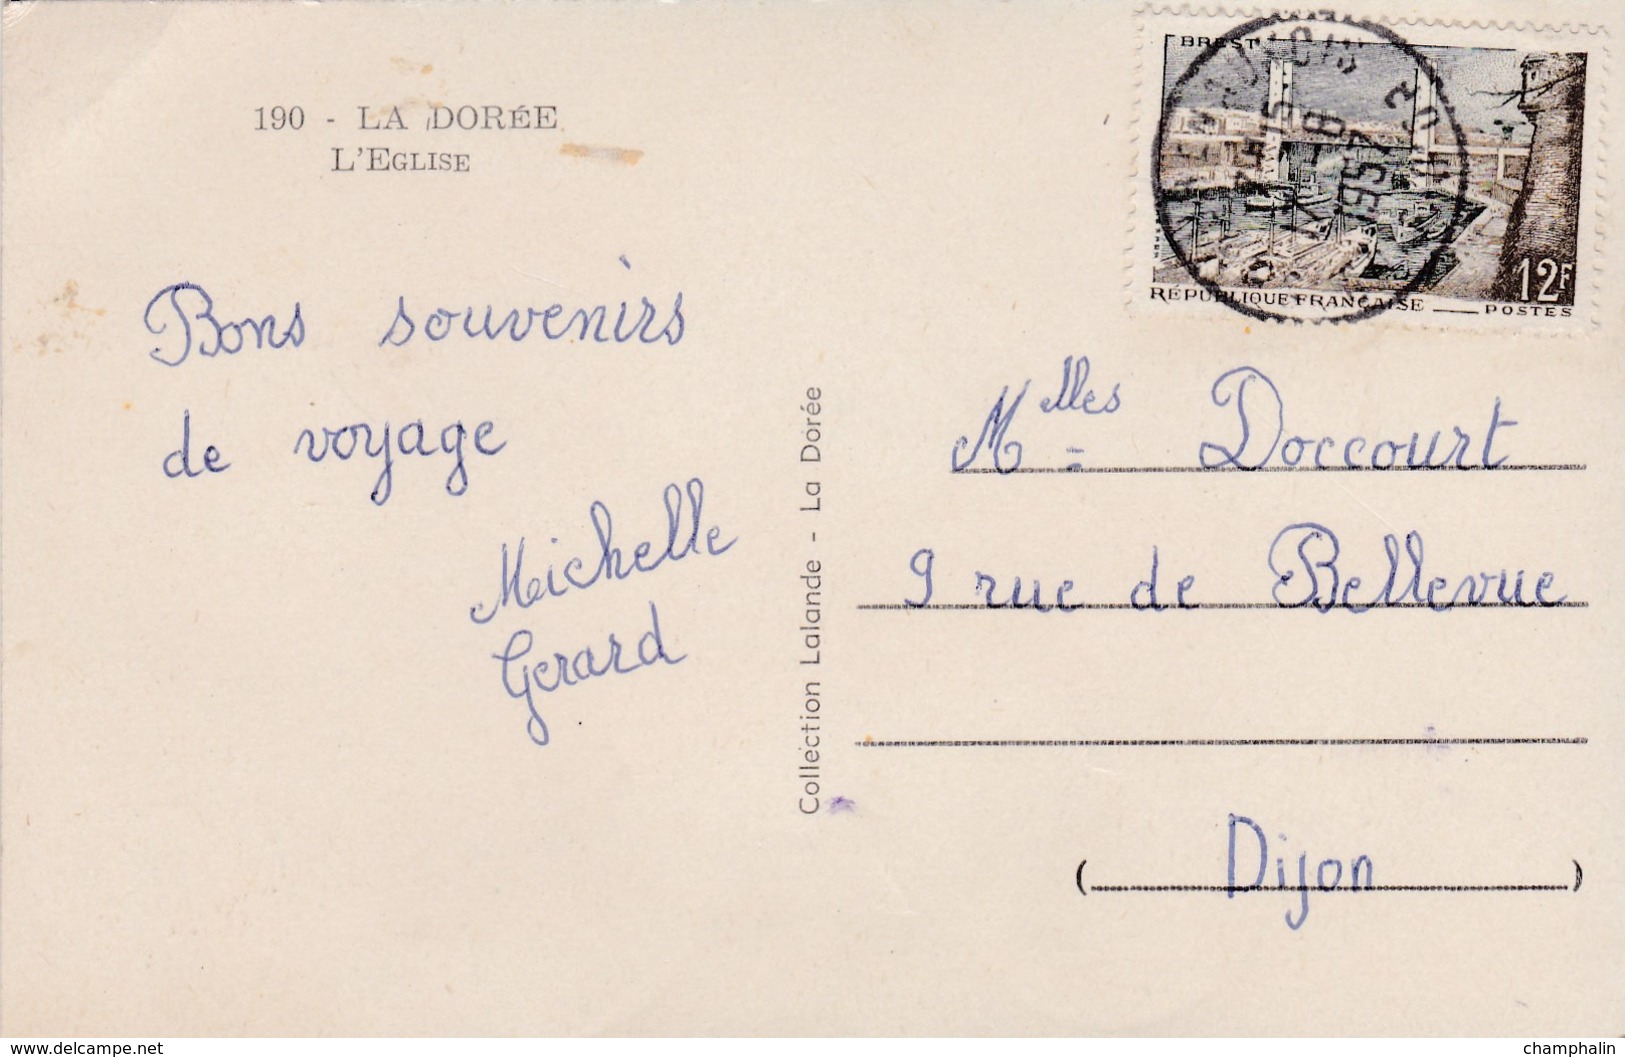 190 - LA DORÉE
L'EGLISE
Bons souvenirs
de voyage
Michelle
Gerard
Collection Lalande - La Dorée
BREST
12F
RÉPUBLIQUE FRANÇAISE
POSTES
1957
Mlles Doccourt
9 rue de Bellevue
(Dijon)
www.delcampe.net
champhalin